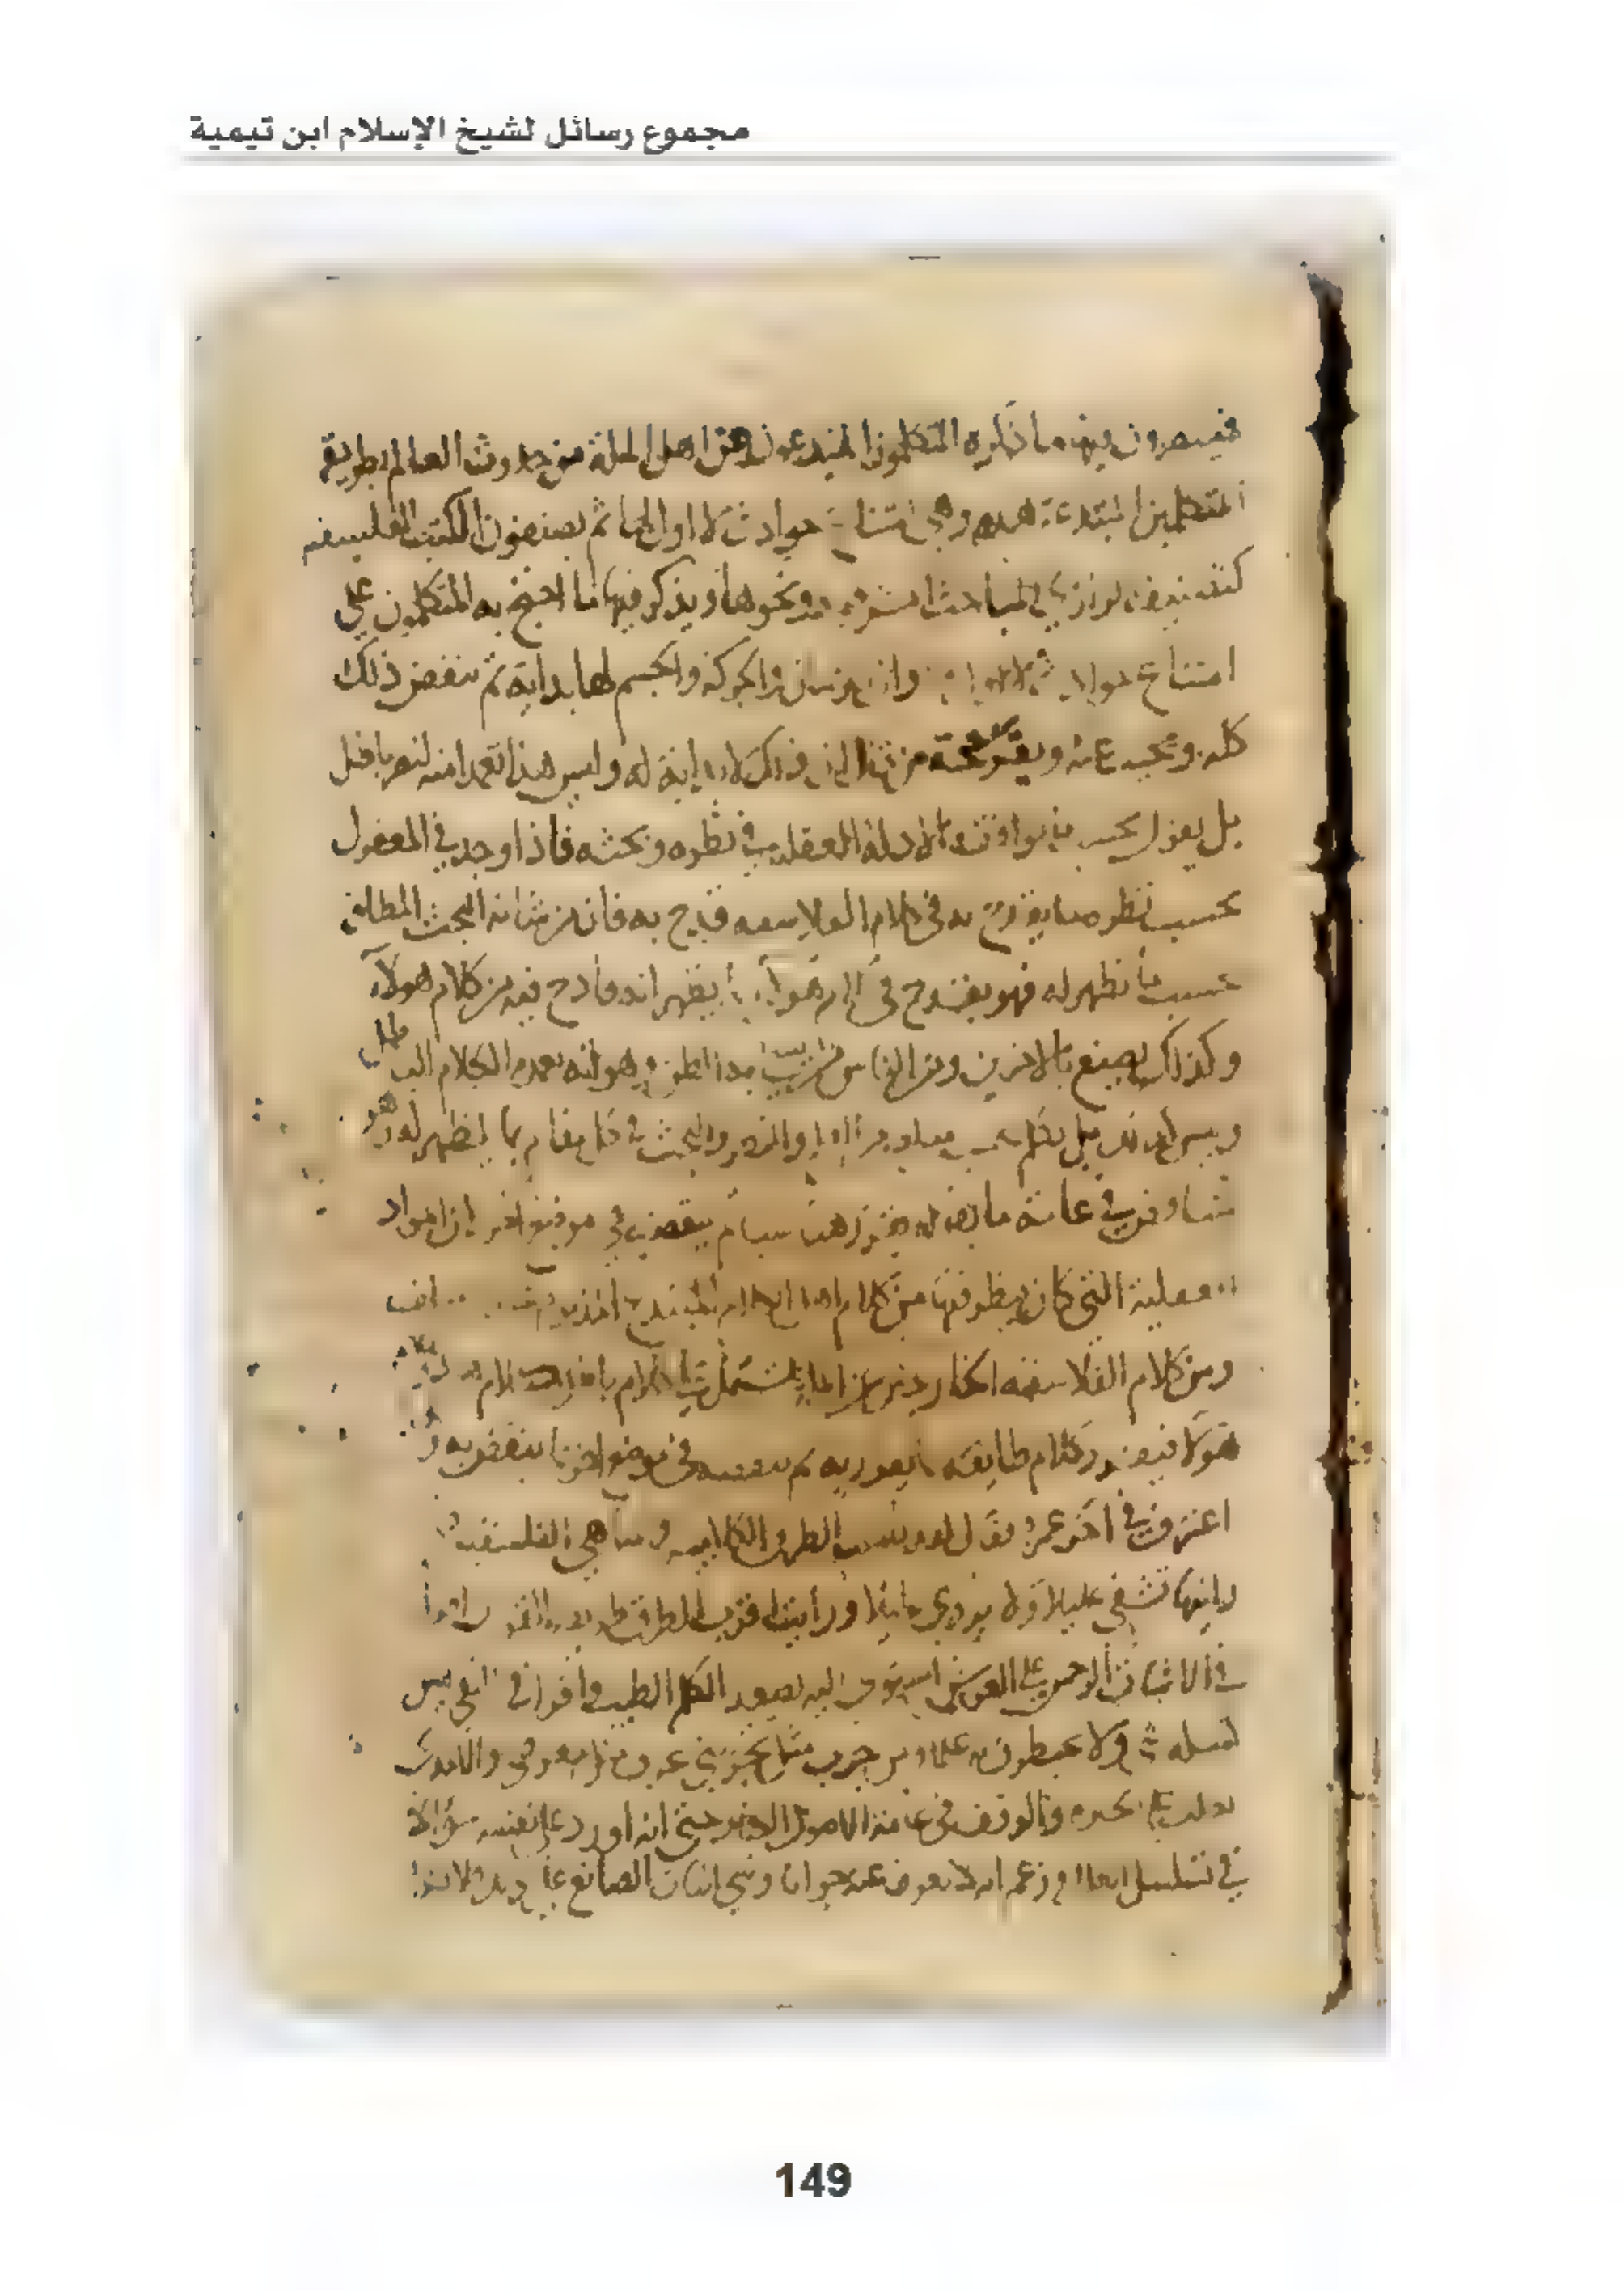 مجموع رسائل لشيخ الإسلام ابن تيمية
فينصرون فيها ما ذكره المتكلمون المبتدعون من اهل الملة من حدوث العالم بطريقة
المتكلمين المبتدعة هذه وهي امتناع حوادث لا اول لها ثم يصنفون الكتب الفلسفية
كتصنيف الرازي المباحث المشرقية ونحوها ويذكر فيها ما احتج به المتكلمون على
امتناع حوادث لا اول لها وان الزمان والحركة والجسم لها بداية ثم ينقض ذلك
كله ويجيب عنه ويقرر حجة من قال ان ذلك لا بداية له وليس هذا تعمدا منه لنصر باطل
بل يقول بحسب ما توافقه الادلة العقلية في نظره وبحثه فاذا وجد في المعقول
بحسب نظره ما يقدح به في كلام الفلاسفه قدح به فان من شانه البحث المطلق
بحسب ما يظهر له فهو يقدح في كلام هولا بما يظهر انه قادح فيه من كلام هولاء
وكذلك يصنع بالاخرين ومن الناس من يسيء به الظن وهو انه يعمد الكلام الباطل
وليس كذلك بل تكلم بحسب مبلغه من العلم والنظر والبحث في كل مقام بما يظهر له وهو
متناقض في عامة ما يقوله يقرر هنا شيا ثم ينقضه في موضع اخر لان المواد
العقلية التي كان ينظر فيها من كلام اهل الكلام المبتدع المذموم
ومن كلام الفلاسفه الخارجين عن الملة يشتمل على كلام باطل
هولا فيقرر كلام طايفه بما يقرر به ثم ينقضه في موضع اخر بما ينقض به
اعترف في اخر عمره فقال لقد تاملت الطرق الكلاميه والمناهج الفلسفية
رايتها تشفي عليلا ولا تروي غليلا ورايت اقرب الطرق طريقة القران اقرا
في الاثبات الرحمن على العرش استوى اليه يصعد الكلم الطيب واقرا في النفي ليس
كمثله شي ولا يحيطون به علما ومن جرب مثل تجربتي عرف مثل معرفتي والامدي
تغلب عليه الحيرة والوقف في عامة الاصول الكبار حتى انه اورد على نفسه سؤالا
في تسلسل العلل وزعم انه لا يعرف عنه جوابا وبنى اثبات الصانع على
149